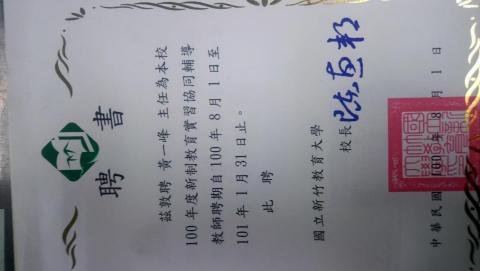 聘書
茲敦聘 黃一峰 主任為本校
100年度新制教育實習協同輔導
教師聘期自100年8月1日至
101年1月31日止。
此聘
國立新竹教育大學
校長
中華民國 100 年 8 月 1 日